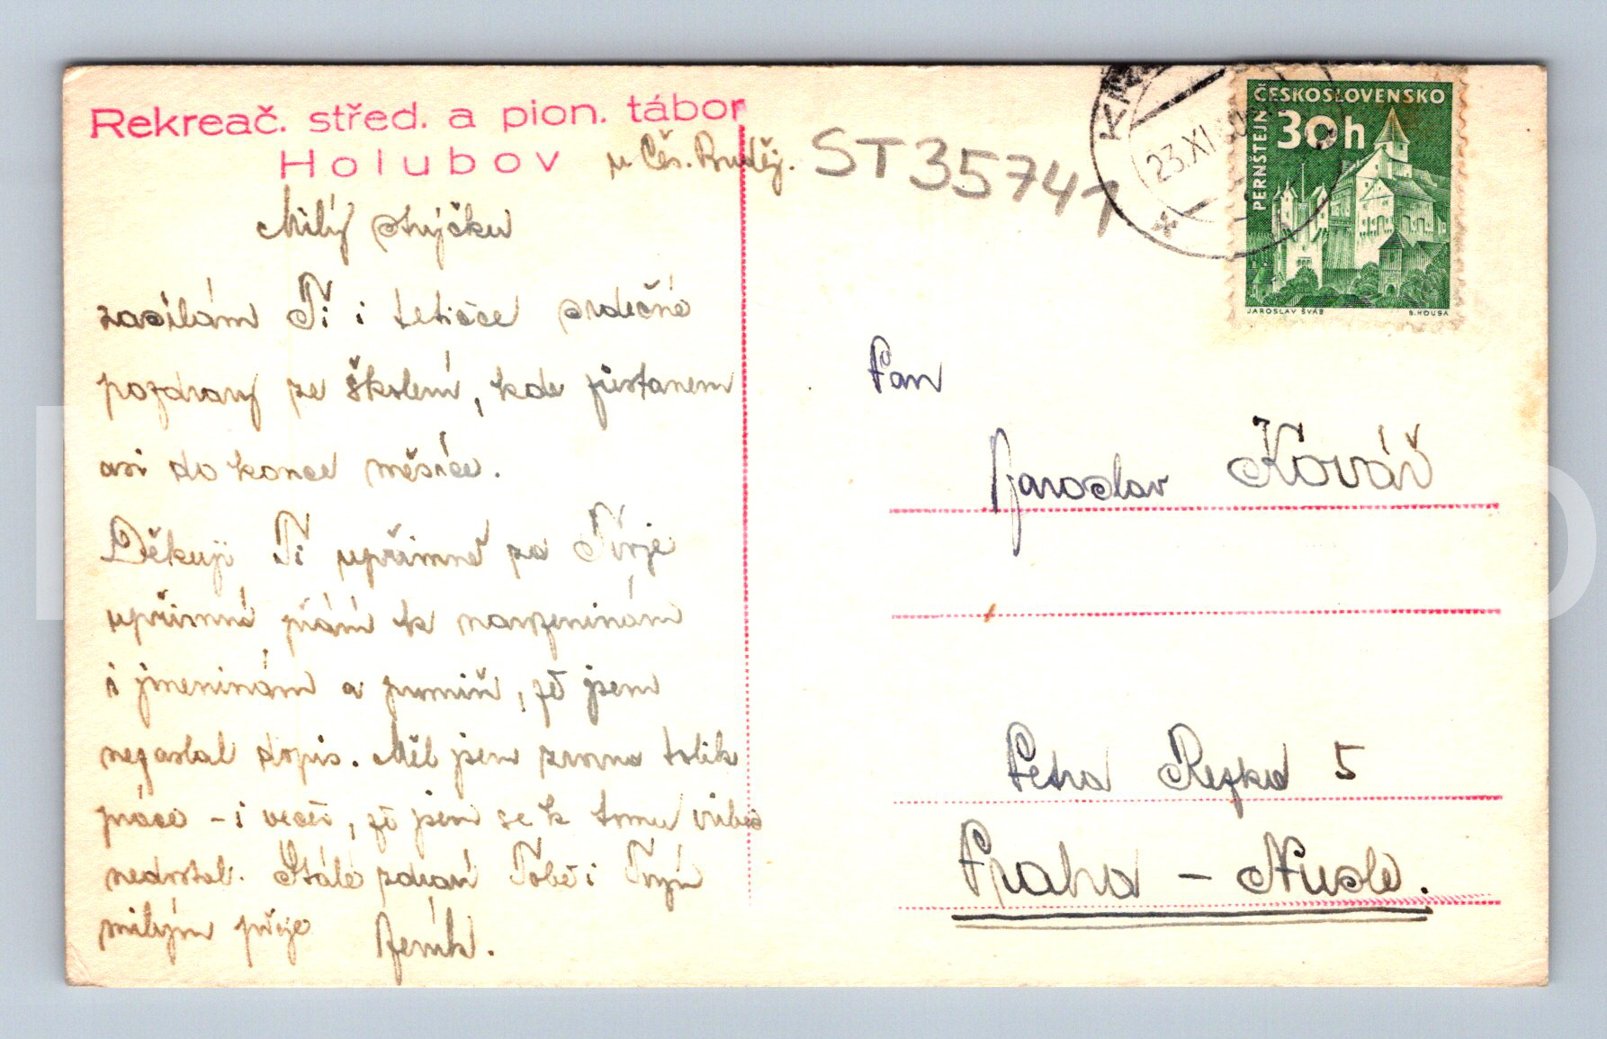 Rekreač. střed. a pion. tábor
Holubov u Čes. Buděj.
Milý strýčku
zasílám Ti i tetičce srdečné
pozdravy ze školení, kde zůstanem
asi do konce měsíce.
Děkuji Ti upřímně za Tvoje
upřímné přání k narozeninám
i jmeninám a promiň, že jsem
nezaslal dopis. Měl jsem zrovna tolik
práce - i večer, že jsem se k tomu vůbec
nedostal. Stále zdraví Tobě i Tvým
milým přeje Jeník.
ST35741
23.XI
ČESKOSLOVENSKO
30h
PERNŠTEJN
JAROSLAV ŠVÁB
B. HOUSA
Pan
Jaroslav Kovář
Petra Rezka 5
Praha - Nusle.